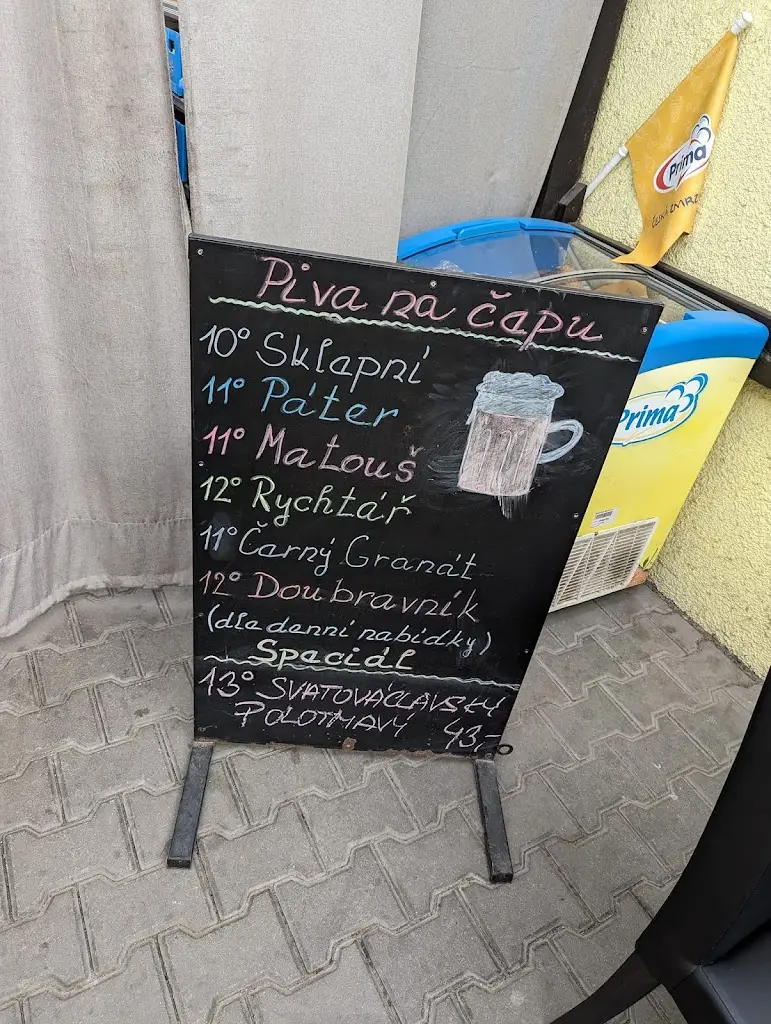 Piva na čapu
10° Sklapní
11° Páter
11° Matouš
12° Rychtář
11° Čarný Granát
12° Doubravník
(dle denní nabídky)
Speciál
13° SVATOVÁCLAVSKÝ
POLOTMAVÝ 43,-
Prima
Prima